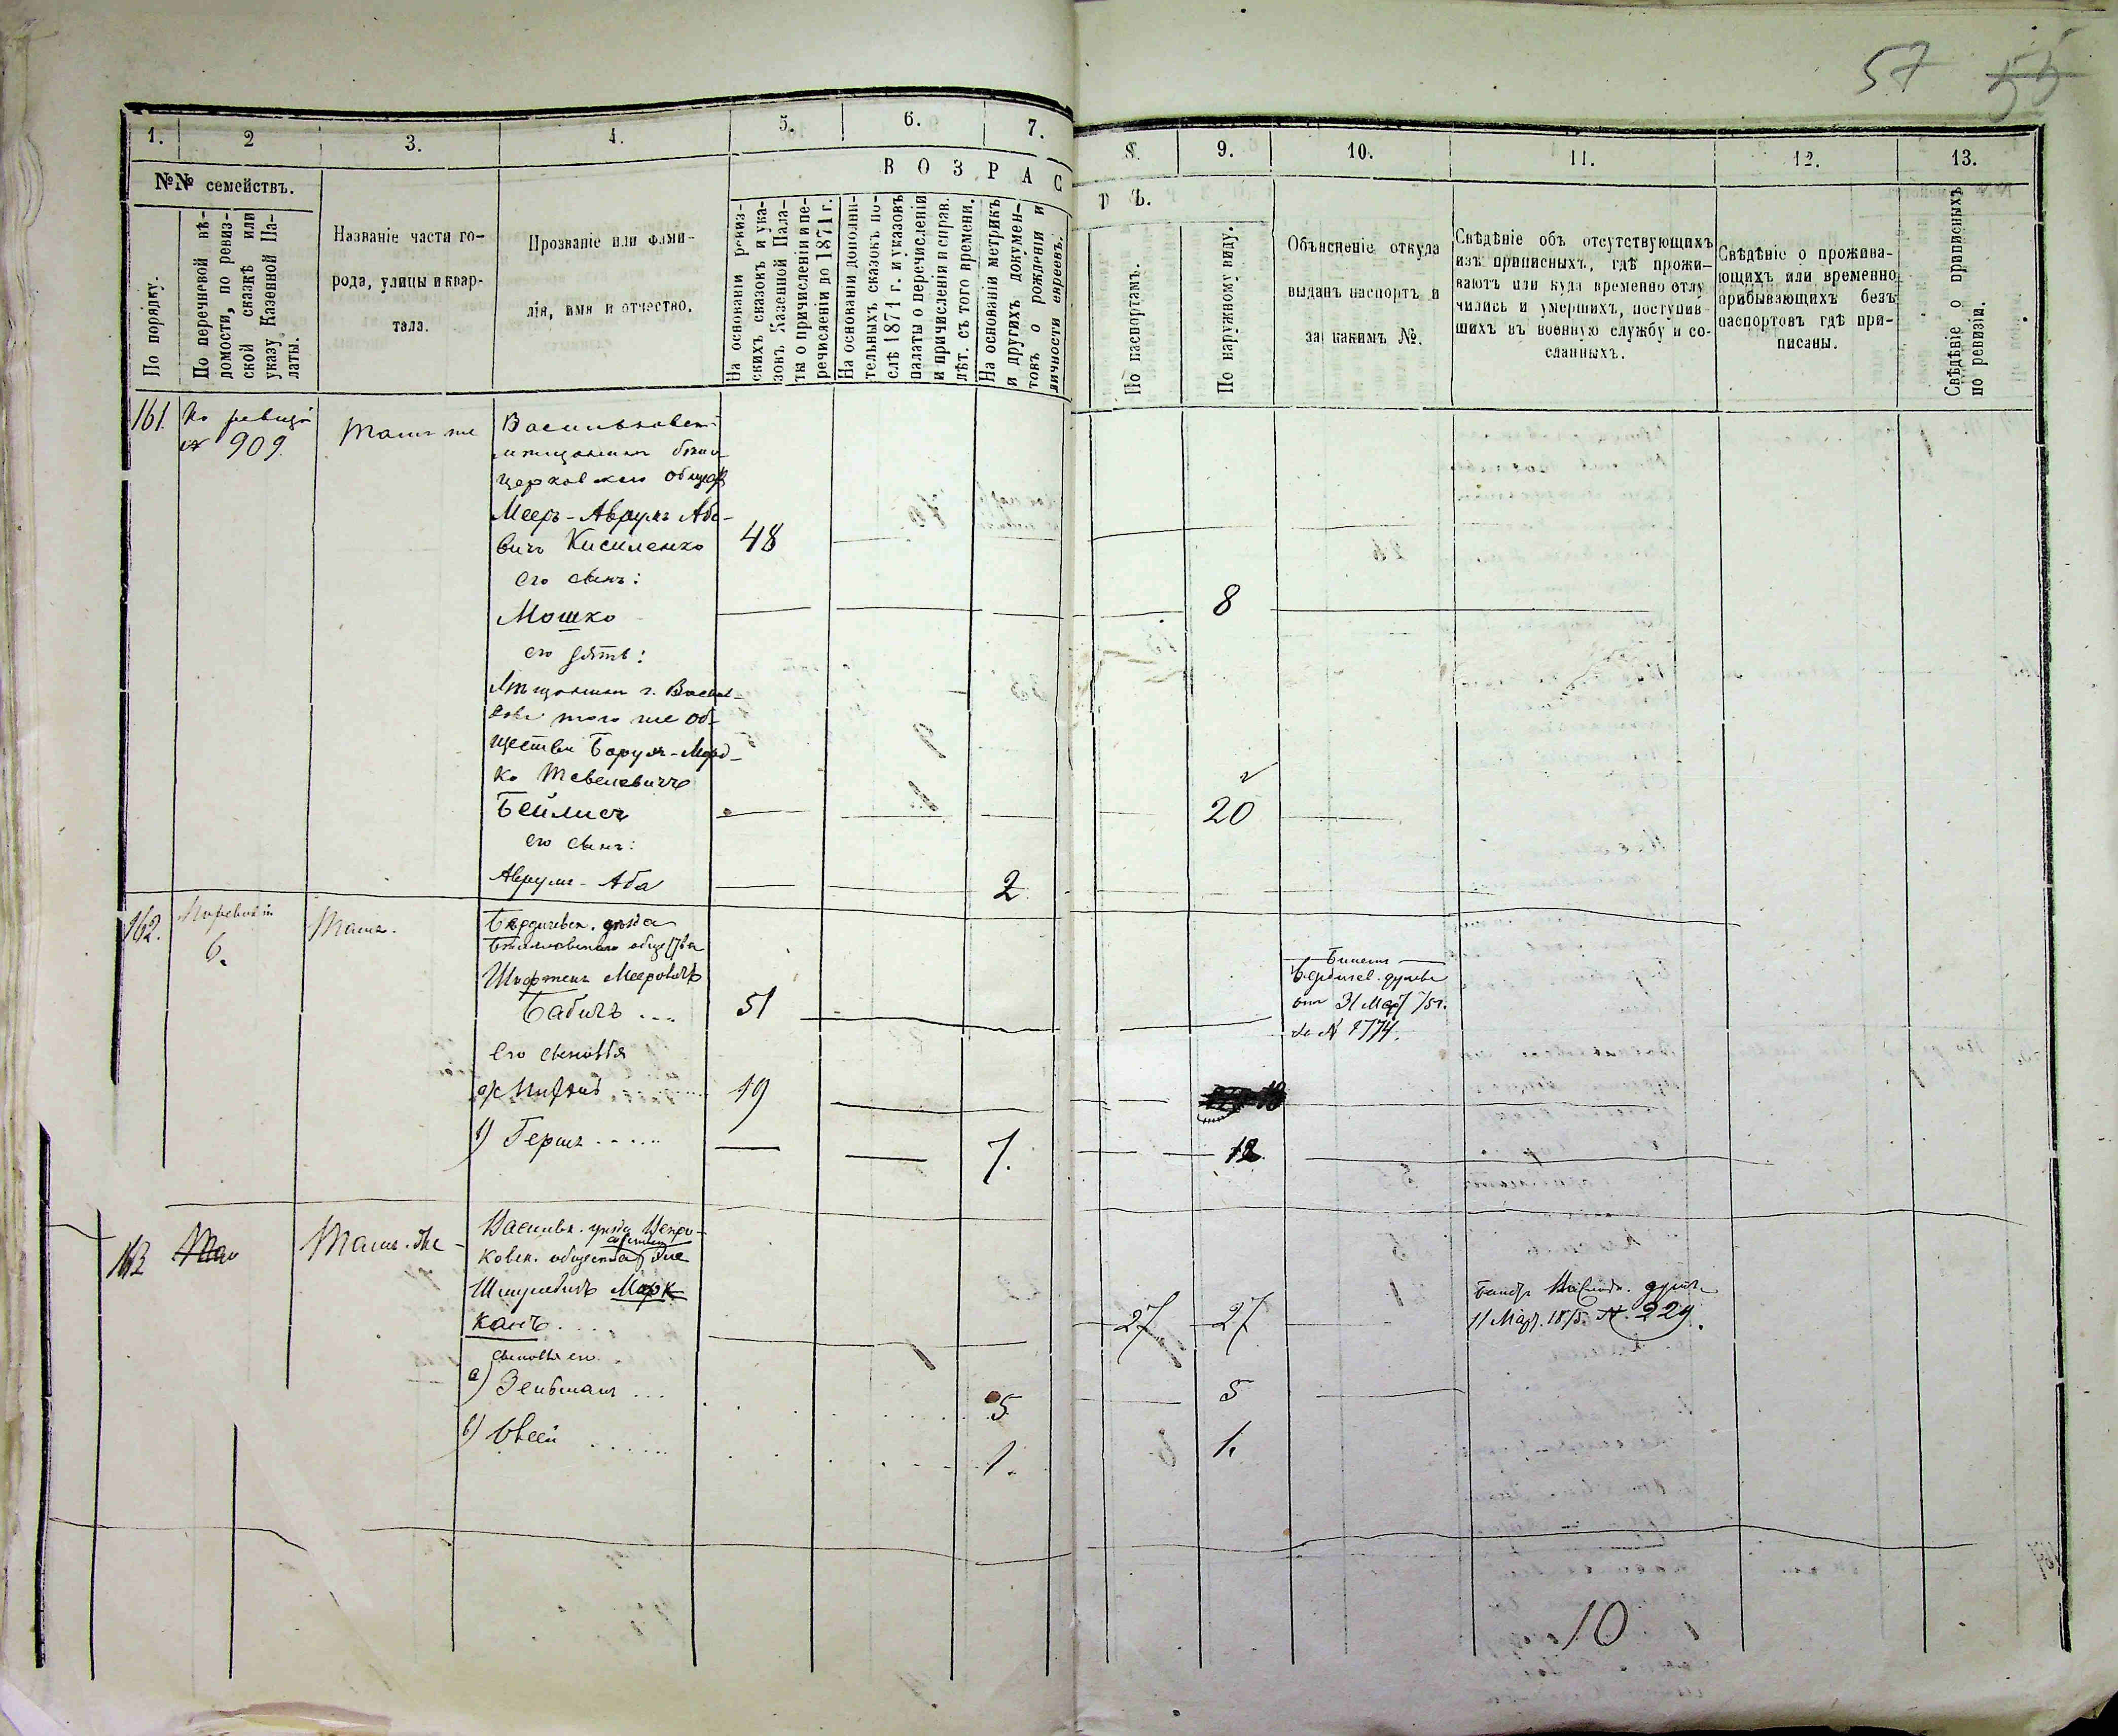 57 55
1. 2 3. 4. 5. 6. 7. 8. 9. 10. 11. 12. 13.
№№ семействъ.
В О З Р А С Т Ъ.
По порядку.
По перечневой вѣ-
домости, по ревиз-
ской сказкѣ или
указу Казенной Па-
латы.
Названіе части го-
рода, улицы и квар-
тала.
Прозваніе или фами-
лія, имя и отчество.
На основаніи ревиз-
скихъ сказокъ и ука-
зовъ Казенной Пала-
ты о причисленіи и пе-
речисленіи до 1871 г.
На основаніи дополни-
тельныхъ сказокъ по-
слѣ 1871 г. и указовъ
палаты о перечисленіи
и причисленіи и справ.
лѣт. съ того времени.
На основаніи метрикъ
и другихъ докумен-
товъ о рожденіи и
личности евреевъ.
По паспортамъ.
По наружному виду.
Объясненіе откуда
выданъ паспортъ и
за какимъ №.
Свѣдѣніе объ отсутствующихъ
изъ приписныхъ, гдѣ прожи-
ваютъ или куда временно отлу
чились и умершихъ, поступив-
шихъ въ военную службу и со-
сланныхъ.
Свѣдѣніе о прожива-
ющихъ или временно
прибывающихъ безъ
паспортовъ гдѣ при-
писаны.
Свѣдѣніе о приписныхъ
по ревизіи.
161. По ревизіи
№ 909.
Тамъ же
Васильковскій
мѣщанинъ бѣло-
церковскаго общества
Мееръ-Аврумъ Або-
вичъ Кисиленко 48
его сынъ:
Мошко 8
его зять:
Мѣщанинъ г. Василь-
кова того же об-
щества Борухъ-Морд-
ко Тевелевичъ
Бейлисъ 20
его сынъ:
Аврумъ-Аба 2
162. По ревизіи
6.
Тамъ.
Бердичевск. уѣзда
общества
Мееровичъ
Бабичъ ... 51
Билетъ
Бердичев. думы
отъ 31 Мар. 75 г.
за № 1774.
Его сыновья
а) 19
в) Гершъ ..... 7. 12
163 Тамъ. же
Васильк. уѣзда
ковск. общества
Шмулевичъ Марк
канъ .... 27 27
11 Мар. 1875. № 229.
сыновья его
а) Зельманъ ... 5 5
в) Евсей ...... 1. 1.
10